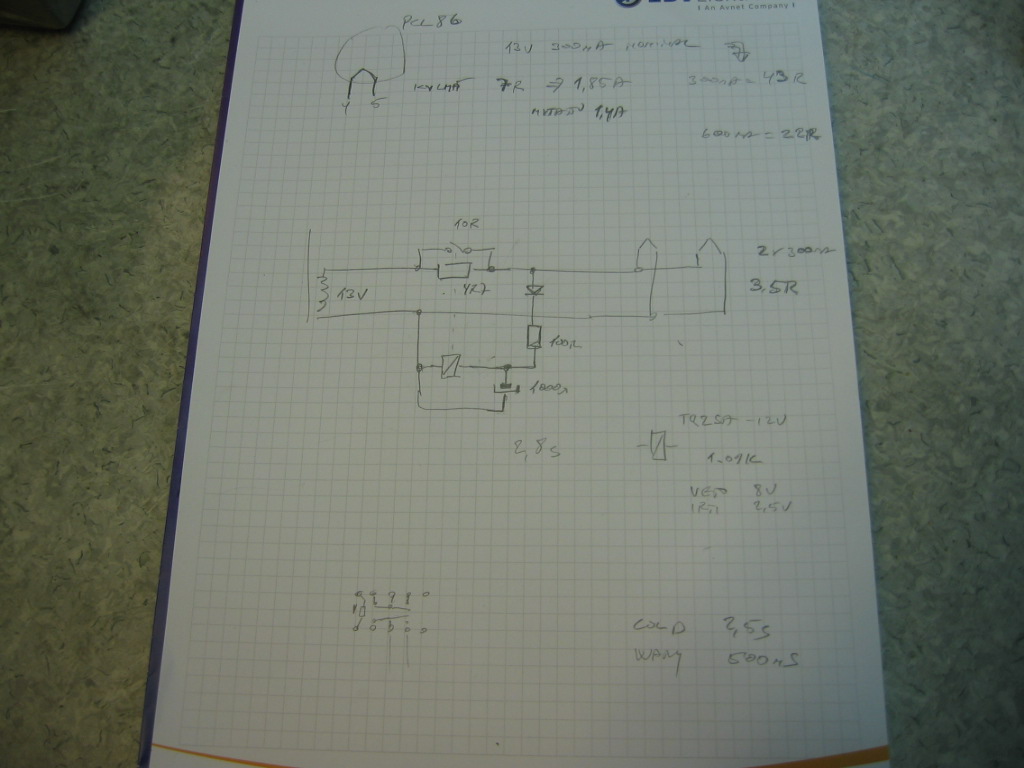 An Avnet Company
PCL 86
13V 300mA nominal
4 5
KYLMÄ 7R ⇒ 1,85A
300mA = 43R
MITATTU 1,4A
600mA = 22R
10R
13V
4R7
2x300mA
3.5R
100R
1000µ
2,8s
-12V
1.09K
VETO 8V
2,5V
COLD 2,5s
WARM 500mS